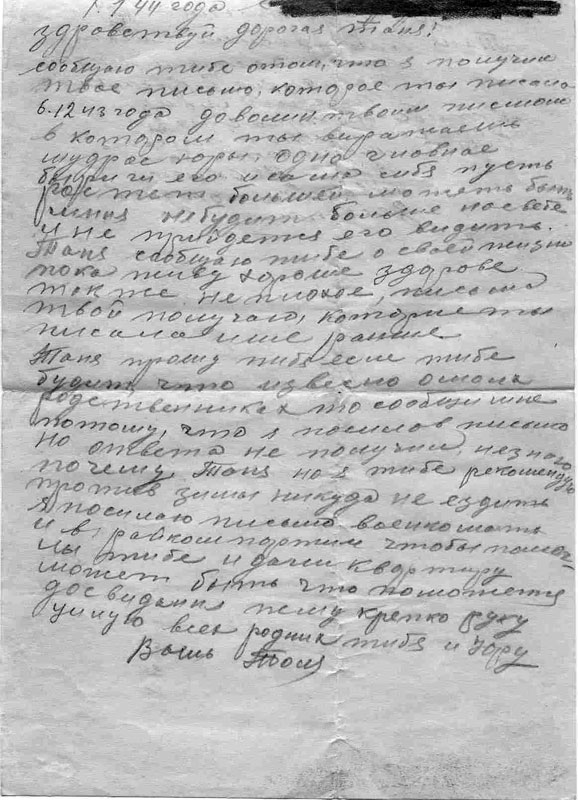 1.1.44 года
здравствуй дорогая Таня!
сообщаю тибе отом, что я получил
твое письмо, которое ты писала
6.12 43 года доволин твоим писмом
в котором ты выражаешь
Юры одно гловное
береги его и сама сибя пусть
растет большей может быть
миня нибудит больше на свете
и не прийдется его видить.
Таня сообщаю тибе о своей жизни
пока живу хороше здорове
также не плохое, письма
твои получаю, которые ты
писала ище раньше
Таня прошу тибя если тибе
будит что извесно о моих
родственниках то сообщи мне
потому, что я посылов письмо
но ответа не получил, незнаю
почему. Таня но я тибе рекомендую
против зимы никуда не ездить
я посилаю письмо военкомать
и в райком партии чтобы помог-
лы тибе и дали квартиру
может быть что поможется
досвидания жму крепко руку
целую всех родних тибя и Юру
Вашь Толя